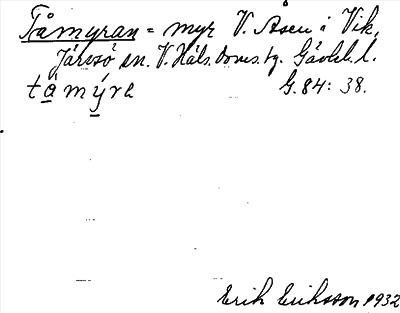 Tåmyran = myr V. Åsen i Vik,
Järvsö sn. V. Häls. Doms. tg. Gävleb. l.
tåmýra G. 84: 38.
Erik Eriksson 1932